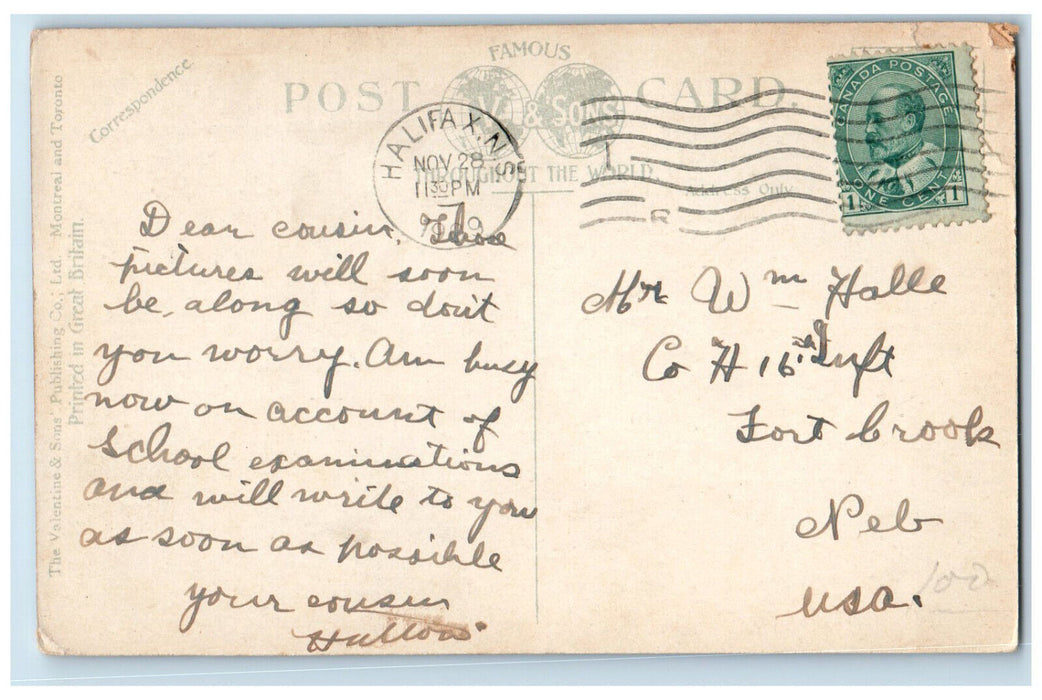 Correspondence.
FAMOUS
POST CARD.
& SONS
THROUGHOUT THE WORLD.
Address Only
CANADA POSTAGE
ONE CENT
1 1
HALIFAX, N.S.
NOV 28
11 30 PM
The Valentine & Sons' Publishing Co.; Ltd. Montreal and Toronto
Printed in Great Britain.
Dear cousin,
pictures will soon
be, along so dont
you worry. Am busy
now on account of
School examinations
and will write to you
as soon as possible
your cousin
Mr Wm Halle
Co H 16th Inft
Fort Crook
Neb
USA.
100